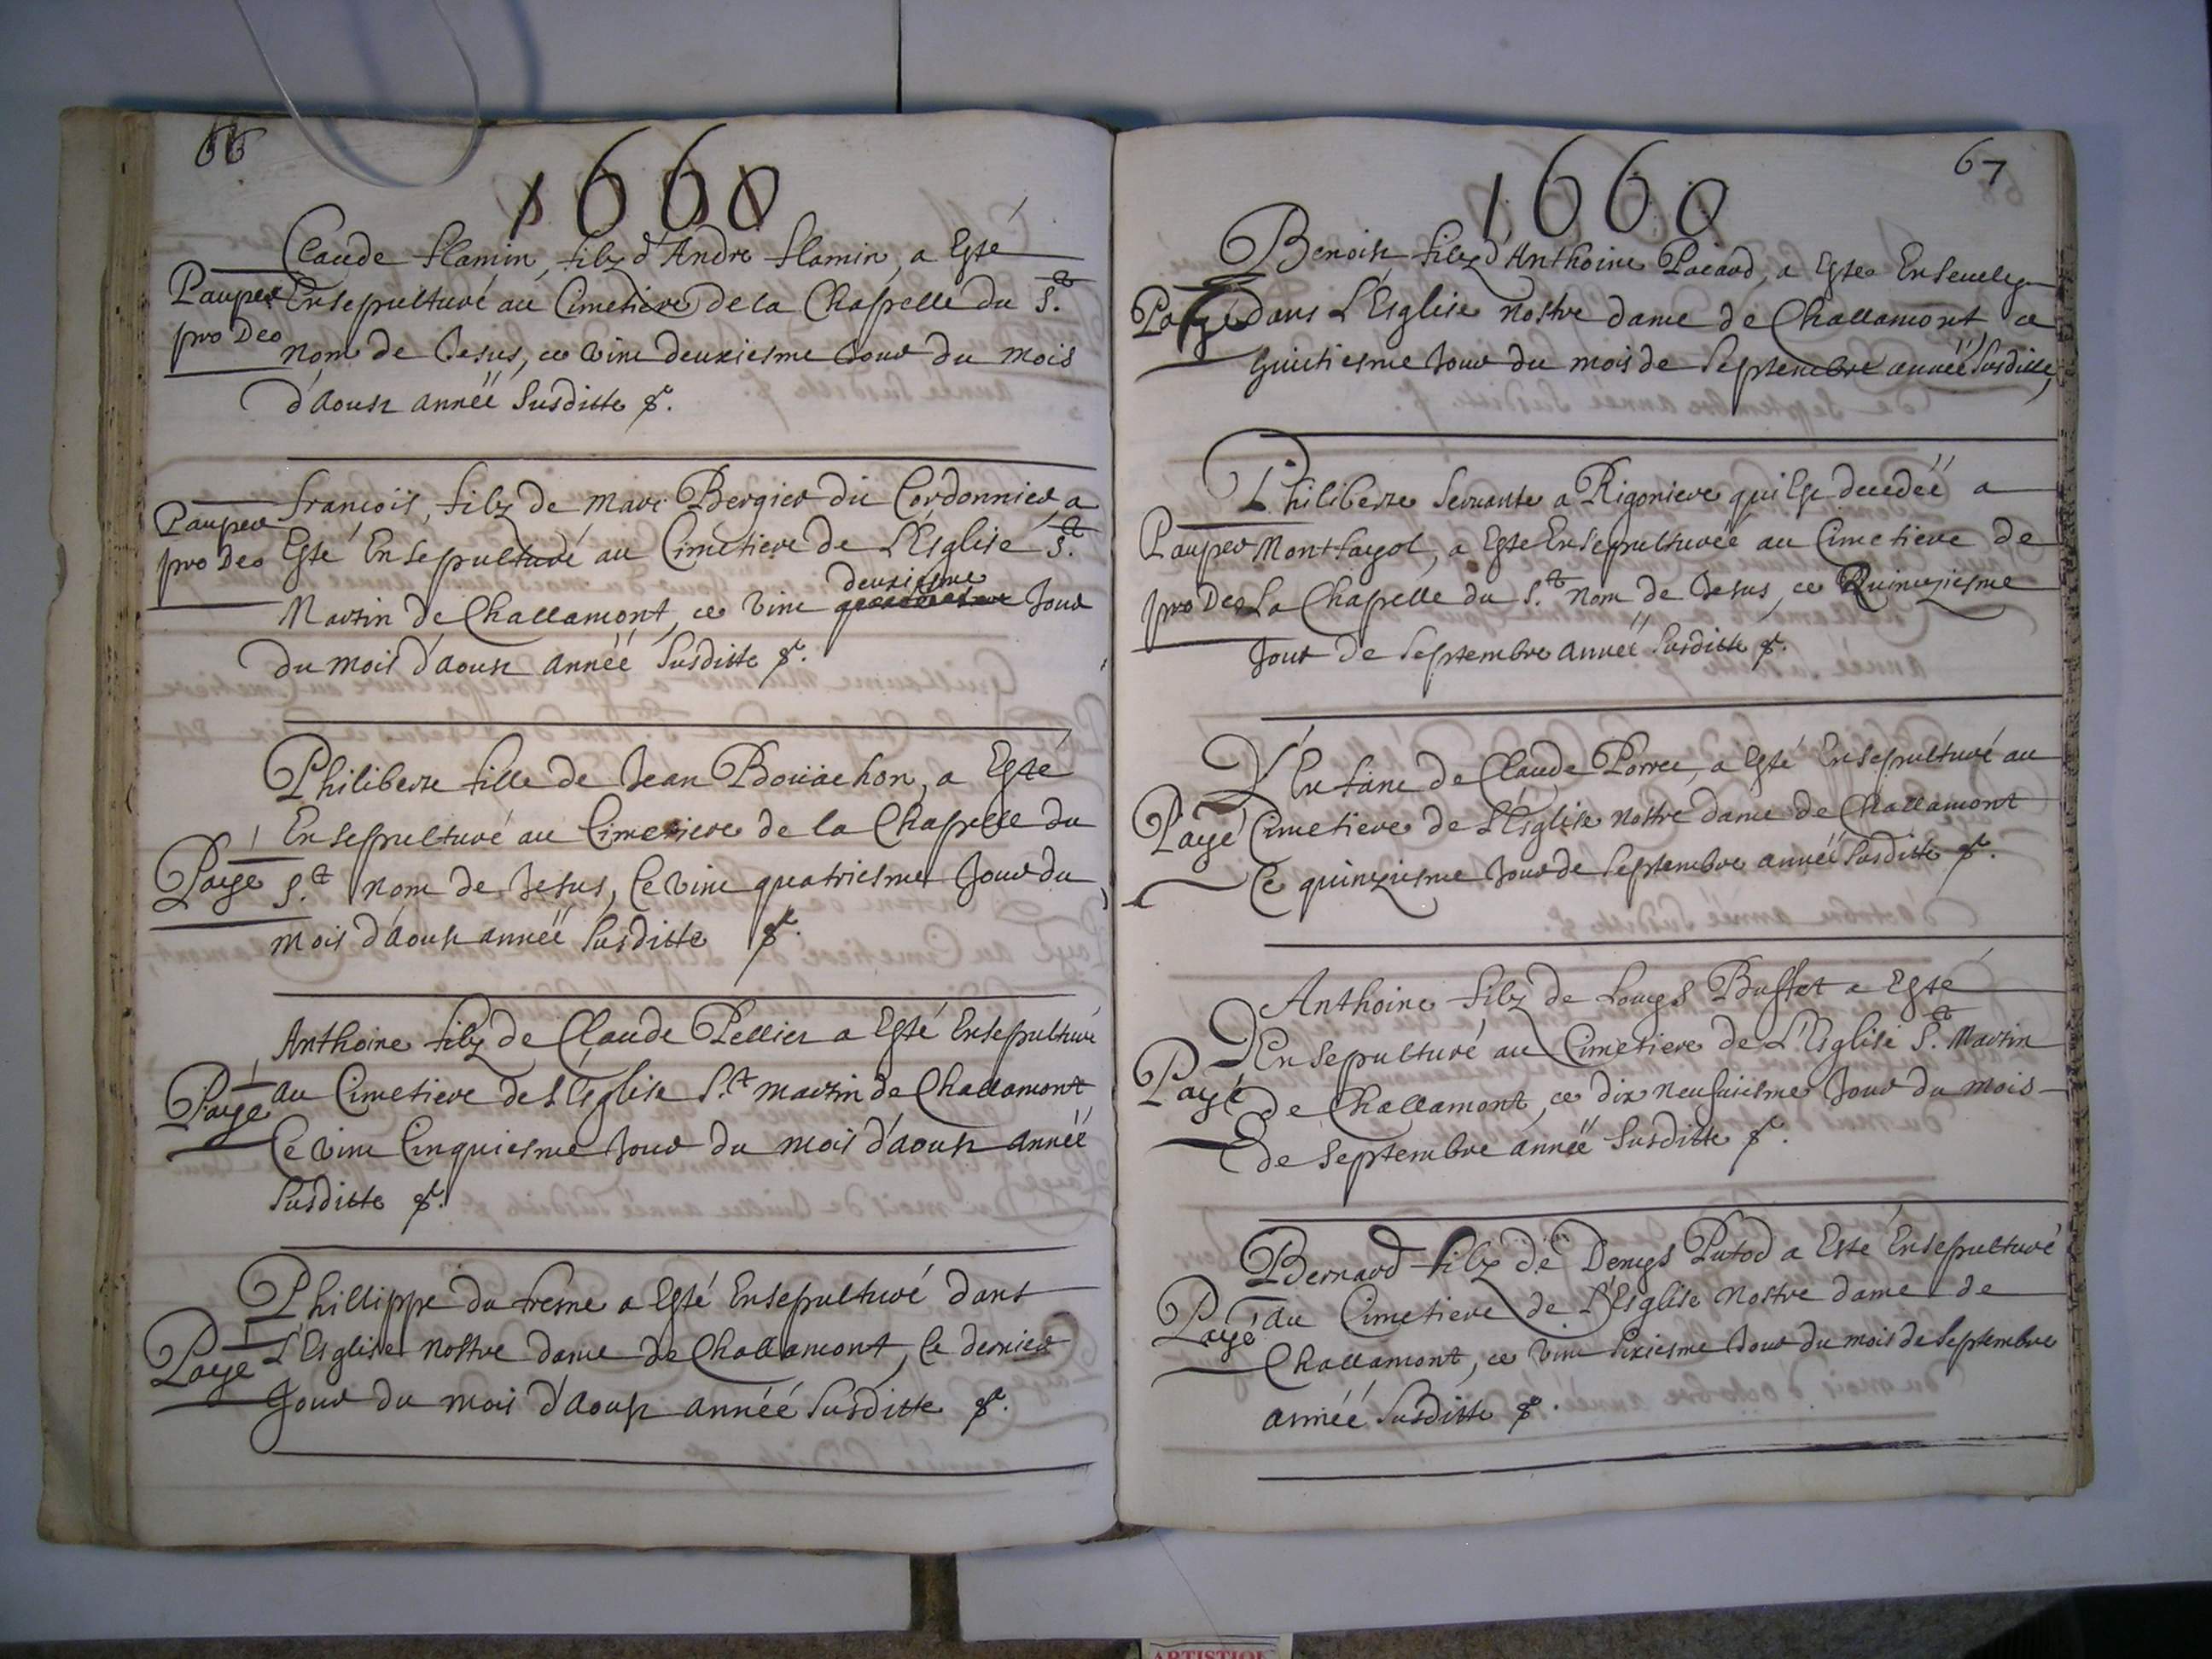 66
1660
Claude flamin, filz d'Andre flamin, a Esté
Pauper Ensepulturé au Cimetiere de la Chapelle du St
pro Deo nom de Jesus, ce vint deuxiesme Jour du mois
d'aoust année susditte &.
francois, filz de Marc Bergier dit Cordonnier, a
Pauper
pro Deo Esté Ensepulturé au Cimetiere de L'Esglise St
deuxiesme
Martin de Challamont, ce vint Jour
du mois d'aoust année susditte &.
Philiberte fille de Jean Boüachon, a Esté
Ensepulturé au Cimetiere de la Chapelle du
Payé St nom de Jesus, Ce vint quatriesme Jour du
mois d'aoust année susditte &.
Anthoine filz de Claude Pellier a Esté Ensepulturé
Payé au Cimetiere de L'Esglise St martin de Challamont
Ce vint Cinquiesme Jour du mois d'aoust année
susditte &.
Phillippe du fresne a Esté Ensepulturé dans
Payé L'Esglise nostre dame de Challamont, Ce dernier
Jour du mois d'aoust année susditte &.
67
1660
Benoist filz d'Anthoine Pacard, a Este Enseuely
Payé dans L'Esglise nostre dame de Challamont, ce
huictiesme Jour du mois de septembre année susditte,
Philiberte seruante a Rigoniere qui Est decedée a
Pauper Montfagol, a Este Ensepulturée au Cimetiere de
pro Deo La Chapelle du St nom de Jesus, ce Quinziesme
Jour de septembre année susditte &.
Vn Enfant de Claude Porret, a Esté Ensepulturé au
Payé Cimetiere de L'Esglise nostre dame de Challamont
Ce quinziesme Jour de septembre année susditte &.
Anthoine filz de Louys Buffet a Esté
Ensepulturé au Cimetiere de L'Esglise St Martin
Payé de Challamont, ce dix neufuiesme Jour du mois
de septembre année susditte &.
Bernard filz de Denys Putod a Esté Ensepulturé
Payé au Cimetiere de L'Esglise nostre dame de
Challamont, ce vint sixiesme Jour du mois de septembre
année susditte &.